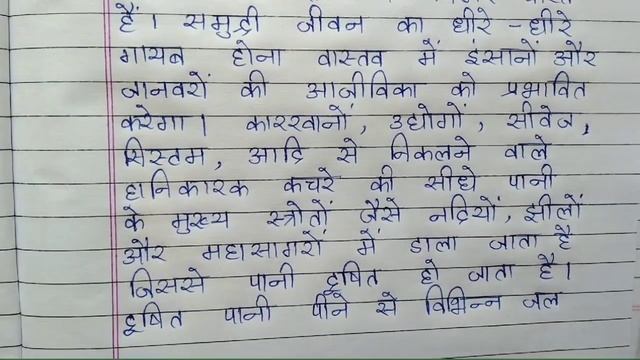 हैं। समुद्री जीवन का धीरे -धीरे
गायब होना वास्तव में इंसानों और
जानवरों की आजीविका को प्रभावित
करेगा। कारखानों, उद्योगों, सीवेज,
सिस्टम, आदि से निकलने वाले
हानिकारक कचरे की सीधे पानी
के मुख्य स्त्रोतों जैसे नदियों, झीलों
और महासागरों में डाला जाता है
जिससे पानी दूषित हो जाता है।
दूषित पानी पीने से विभिन्न जल